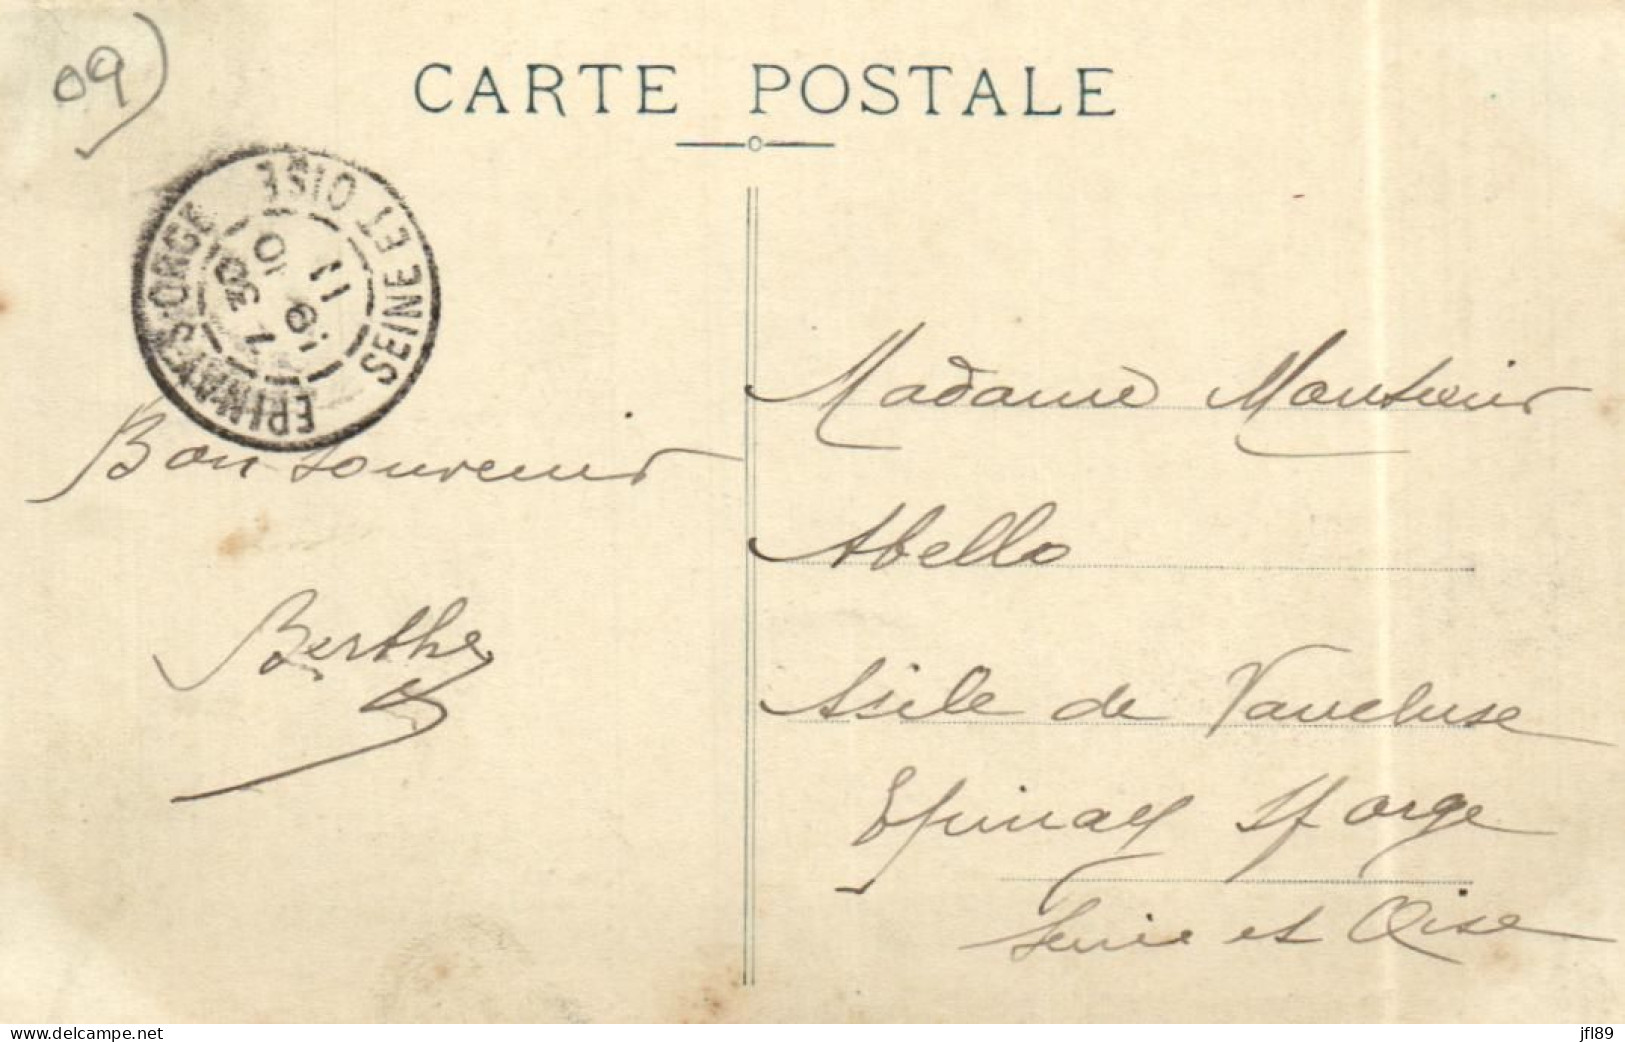 09)
CARTE POSTALE
EPINAY-S-ORGE SEINE ET OISE
7 30
19 10
11
Bon souvenir
Berthe
Madame Monsieur
Abello
Asile de Vaucluse
Epinay s/ orge
Seine et Oise
www.delcampe.net
jfl89